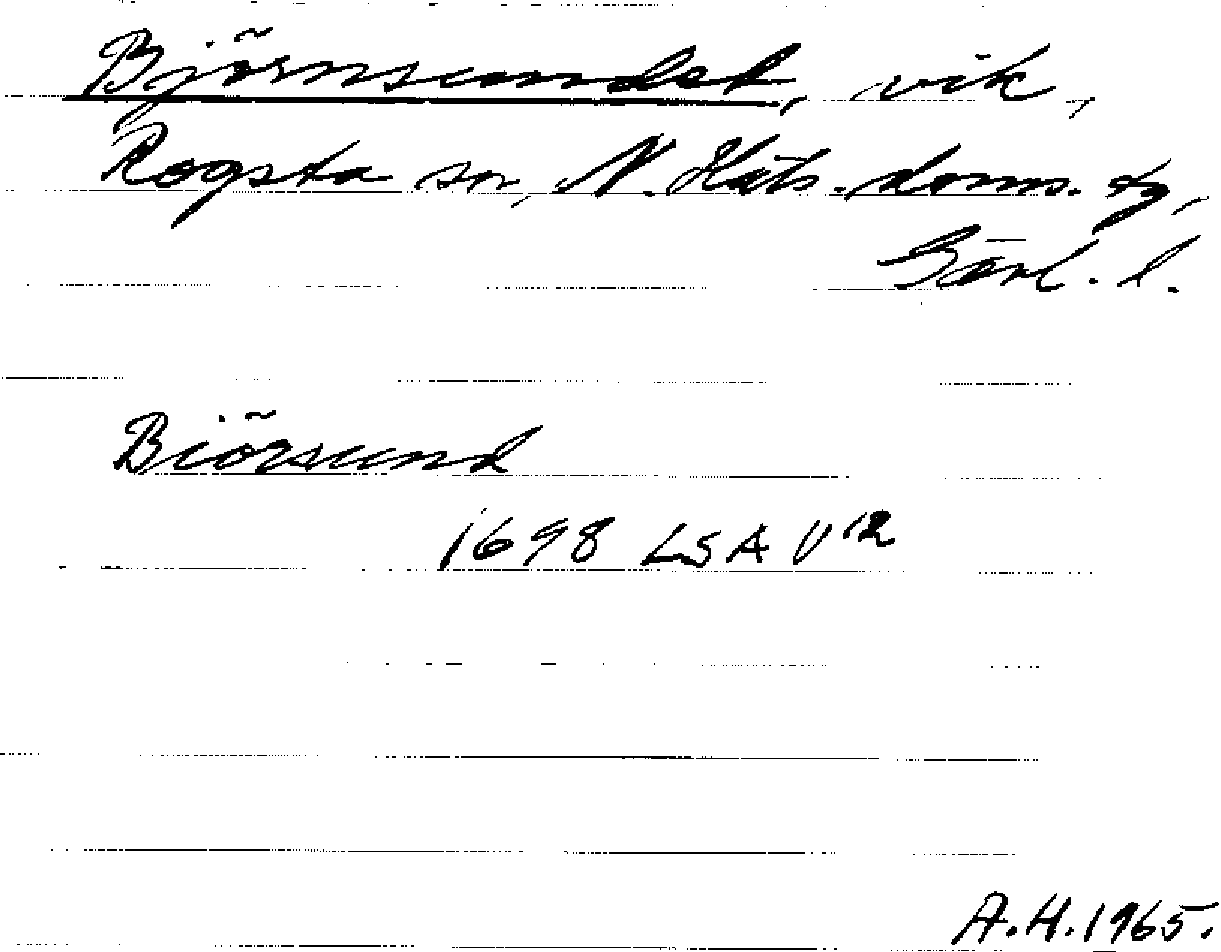 Björnsundet, vik,
Rogsta sn, N. Häls. doms. sg,
Gävl. l.
Biörsund
1698 LSA V 12
A.H. 1965.